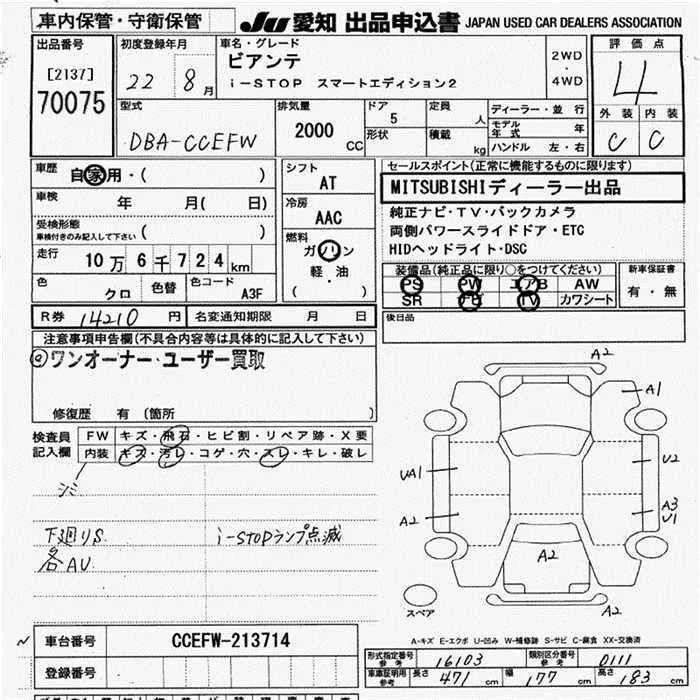 車内保管・守衛保管
JU 愛知 出品申込書 JAPAN USED CAR DEALERS ASSOCIATION
出品番号
[2137]
70075
初度登録年月
22 8月
車名・グレード
ビアンテ
i-STOP スマートエディション2
2WD
・
4WD
評価点
4
外装 内装
C C
型式
DBA-CCEFW
排気量
2000 CC
ドア
5
形状
定員
人
積載
kg
ディーラー・並行
モデル年式 年
ハンドル 左・右
車歴
自家用・( )
車検
年 月( 日)
受検形態
車検付きのみ記入して下さい ( )
走行
10万6千724km
色
クロ
色替
色コード
A3F
シフト
AT
冷房
AAC
燃料
ガソリン
軽・油
( )
セールスポイント(正常に機能するものに限ります)
MITSUBISHIディーラー出品
純正ナビ・TV・バックカメラ
両側パワースライドドア・ETC
HIDヘッドライト・DSC
装備品(純正品に限り○をつけてください)
PS PW エアB AW
SR ナビ TV カワシート
新車保証書
有・無
R券 14210 円
名変通知期限 月 日
後日品
注意事項申告欄(不具合内容等は具体的に記入して下さい)
ワンオーナー・ユーザー買取
修復歴 有 (箇所 )
検査員
記入欄
FW キズ・飛石・ヒビ割・リペア跡・X要
内装 キズ・汚レ・コゲ・穴・スレ・キレ・破レ
シミ
下廻りS
i-STOPランプ点滅
各AU
A2
A1
UA1
U2
A2
A3
U1
A2
スペア
A2
A-キズ E-エクボ U-凹み W-補修跡 S-サビ C-腐食 XX-交換済
車台番号
CCEFW-213714
登録番号
形式指定番号
参考
16103
類別区分番号
参考
0111
車庫証明用
参考
長さ 471 cm
幅 177 cm
高さ 183 cm